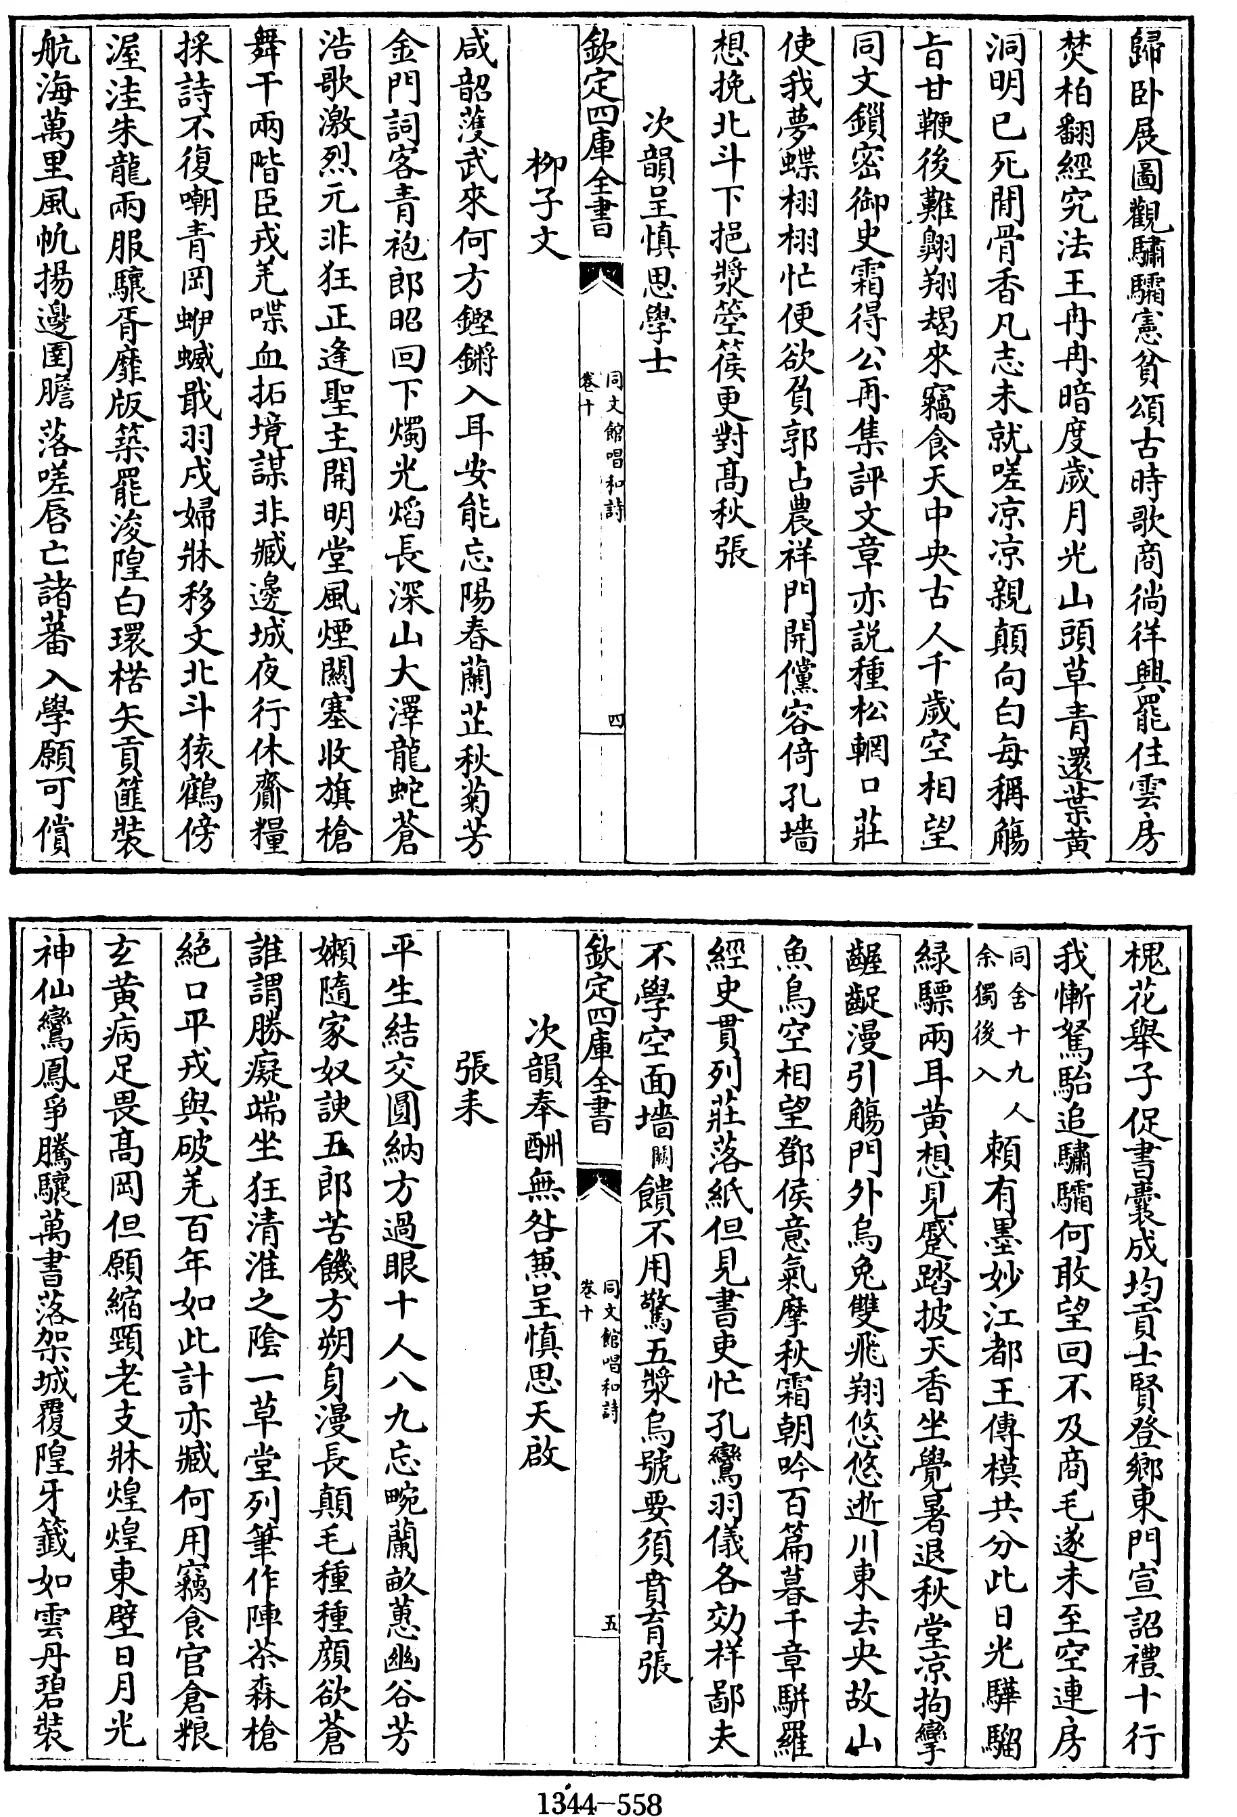 歸卧展圖觀驌驦憲貧頌古時歌商徜徉興罷住雲房
焚柏翻經究法王冉冉暗度歲月光山頭草青還葉黄
洞明已死閒骨香凡志未就嗟凉凉親顛向白每稱觴
旨甘鞭後難翺翔朅來竊食天中央古人千歲空相望
同文鎻密御史霜得公再集評文章亦説種松輞口莊
使我夢蝶栩栩忙便欲負郭占農祥門開儻容倚孔墻
想挽北斗下挹漿箜篌更對髙秋張
次韻呈慎思學士
欽定四庫全書
同文館唱和詩
卷十
四
栁子文
咸韶濩武來何方鏗鏘入耳安能忘陽春蘭芷秋菊芳
金門詞客青袍郎昭回下燭光焰長深山大澤龍蛇蒼
浩歌激烈元非狂正逢聖主開明堂風煙闗塞收旗槍
舞干兩階臣戎羌喋血拓境謀非臧邊城夜行休齎糧
採詩不復嘲青岡蛜蝛戢羽戍婦牀移文北斗猿鶴傍
渥洼朱龍兩服驤胥靡版築罷浚隍白環楛矢貢篚裝
航海萬里風帆揚邊圉膽落嗟唇亡諸蕃入學願可償
槐花舉子促書囊成均貢士賢登鄉東門宣詔禮十行
我慚駑駘追驌驦何敢望回不及商毛遂未至空連房
同舍十九人余獨後入
賴有墨妙江都王傳模共分此日光驊騮
緑騵兩耳黄想見蹙踏披天香坐覺暑退秋堂凉拘攣
齷齪漫引觴門外烏兔雙飛翔悠悠逝川東去央故山
魚鳥空相望鄧侯意氣摩秋霜朝吟百篇暮千章駢羅
經史貫列莊落紙但見書吏忙孔鸞羽儀各効样鄙夫
不學空面墻闕饋不用驚五漿烏號要須賁育張
欽定四庫全書
同文館唱和詩
卷十
五
次韻奉酬無咎兼呈慎思天啟
張耒
平生結交圓納方過眼十人八九忘畹蘭畝蕙幽谷芳
嬾隨家奴諛五郎苦饑方朔身漫長顛毛種種顔欲蒼
誰謂勝癡端坐狂清淮之隂一草堂列筆作陣茶森槍
絶口平戎與破羌百年如此計亦臧何用竊食官倉粮
玄黄病足畏髙岡但願縮頸老支牀煌煌東壁日月光
神仙鸞鳳爭騰驤萬書落架城覆隍牙籖如雲丹碧裝
1344-558